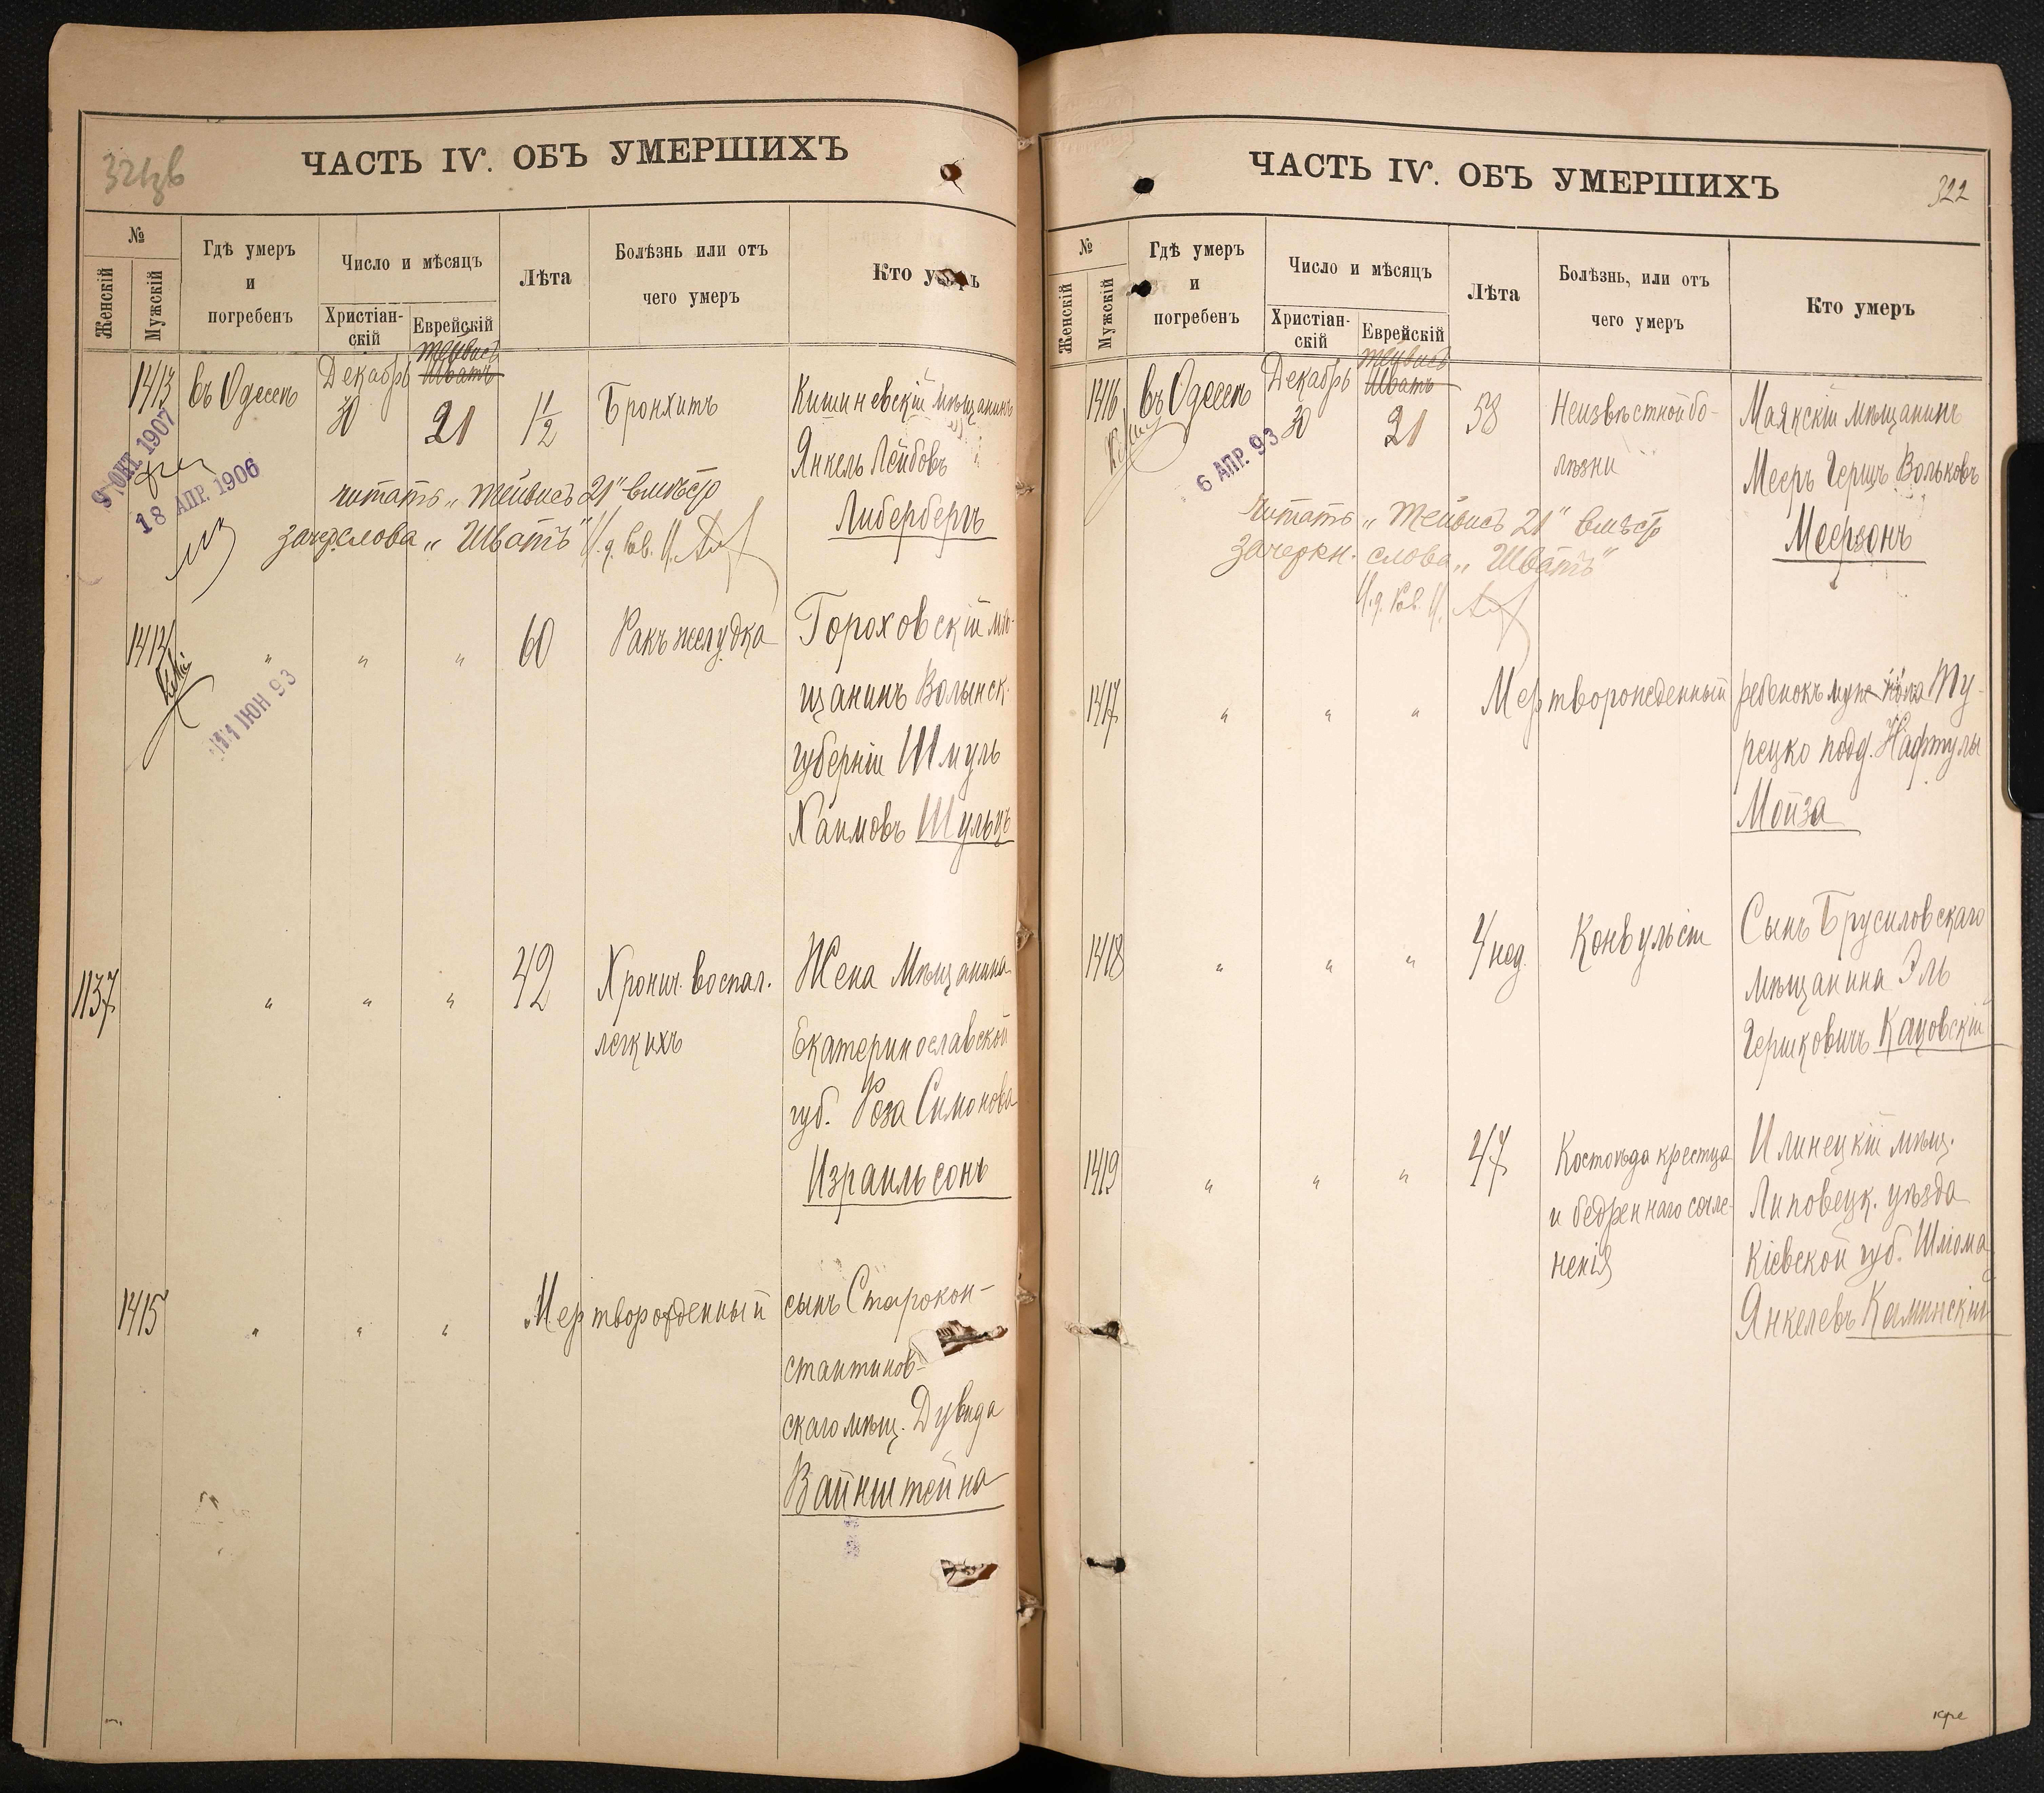 321зв
ЧАСТЬ IV. ОБЪ УМЕРШИХЪ
№
Женскій
Мужскій
Гдѣ умеръ
и
погребенъ
Число и мѣсяцъ
Христіан-
скій
Еврейскій
Лѣта
Болѣзнь или отъ
чего умеръ
Кто умеръ
1413
въ Одессѣ
Декабрь
30
Тейвисъ
Шватъ
21
1½
Бронхитъ
Кишиневскій мѣщанинъ
Янкель Лейбовъ
Либербергъ
9 ОКТ. 1907
18 АПР. 1906
читать „Тейвисъ 21" вмѣсто
зачер. слова „Шватъ" И. д. Рав. И.
1414
" " "
60
Ракъ желудка
Гороховскій мѣ-
щанинъ Волынск.
губерніи Шмуль
Хаимовъ Шульцъ
11 ІЮН 93
1137
" " "
42
Хронич. воспал.
легкихъ
Жена мѣщанина
Екатеринославской
губ. Роза Симонова
Израильсонъ
1415
" " "
Мертворожденный сынъ Старокон-
стантинов-
скаго мѣщ. Дувида
Вайнштейна
ЧАСТЬ IV. ОБЪ УМЕРШИХЪ
322
№
Женскій
Мужскій
Гдѣ умеръ
и
погребенъ
Число и мѣсяцъ
Христіан-
скій
Еврейскій
Лѣта
Болѣзнь, или отъ
чего умеръ
Кто умеръ
1416
въ Одессѣ
Декабрь
30
Тейвисъ
Шватъ
21
58
Неизвѣстной бо-
лѣзни
Маякскій мѣщанинъ
Мееръ Герщъ Вольковъ
Меерзонъ
6 АПР. 93
Читать „Тейвисъ 21" вмѣсто
зачеркн. слова „Шватъ"
И. д. Рав. И.
1417
" " "
Мертворожденный ребенокъ муж. пола Ту-
рецко подд. Нафтулы
Мойза
1418
" " "
4 нед.
Конвульсіи
Сынъ Брусиловскаго
мѣщанина Эль
Гершковичъ Кацовскій
1419
" " "
47
Костоѣда крестца
и бедреннаго сочле-
ненія
Илинецкій мѣщ.
Липовецк. уѣзда
Кіевской губ. Шліома
Янкелевъ Каминскій